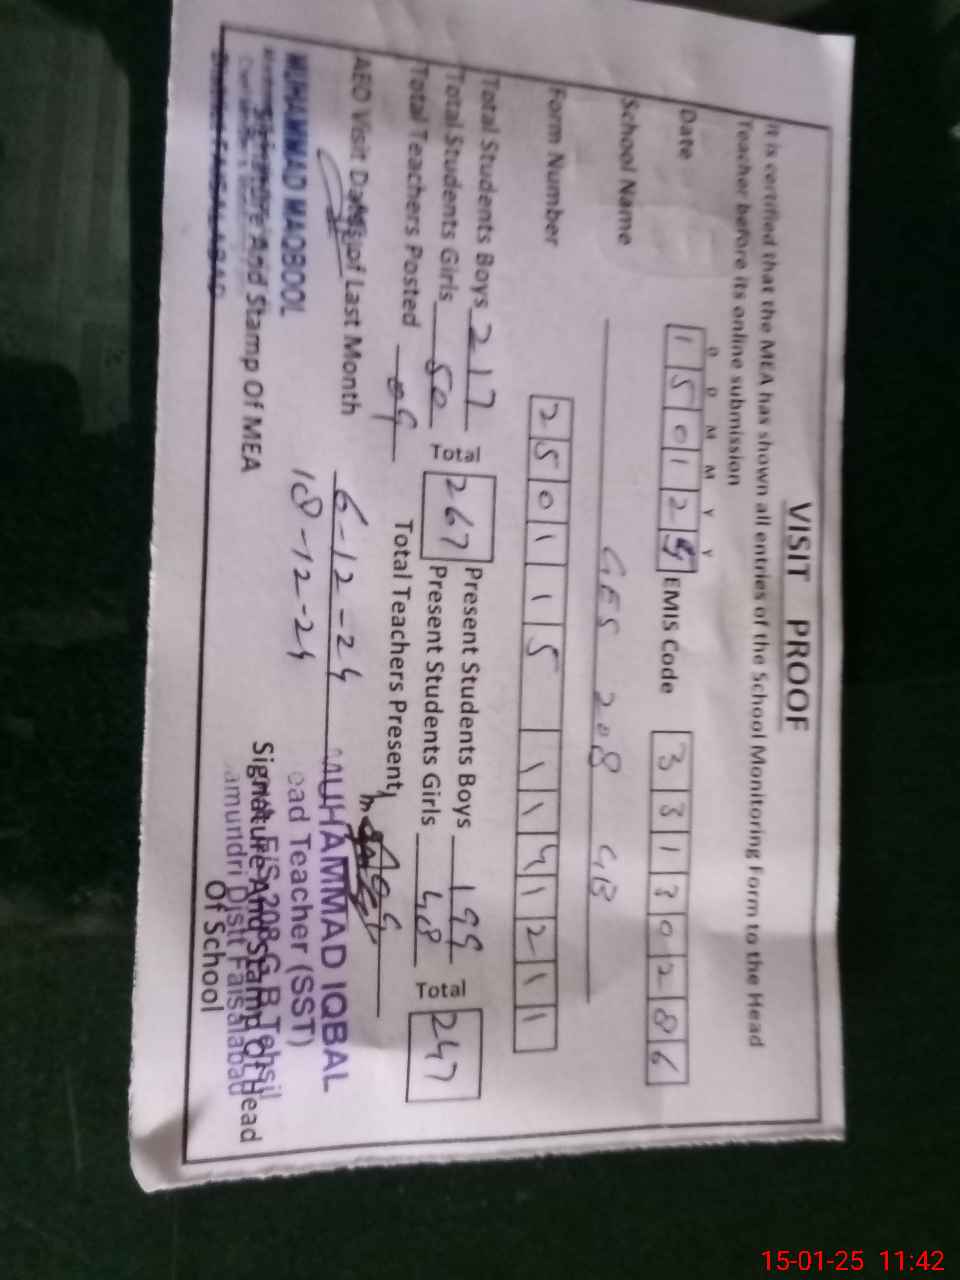 VISIT PROOF
It is certified that the MEA has shown all entries of the School Monitoring Form to the Head
Teacher before its online submission
D D M M Y Y
Date 1 5 0 1 2 5 EMIS Code 3 3 1 3 0 2 8 6
School Name GES 208 GB
Form Number 2 5 0 1 1 5 1 1 4 1 2 1 1
Total Students Boys 217 Total 267 Present Students Boys 199 Total 247
Total Students Girls 50 Present Students Girls 48
Total Teachers Posted 09 Total Teachers Present 09
AEO Visit Dates of Last Month 6-12-24
18-12-24
MUHAMMAD MAQBOOL
Signature And Stamp Of MEA
MUHAMMAD IQBAL
ead Teacher (SST)
208 G.B Tehsil
amundri Distt Faisalabad
Signature And Stamp Of Head
Of School
15-01-25 11:42